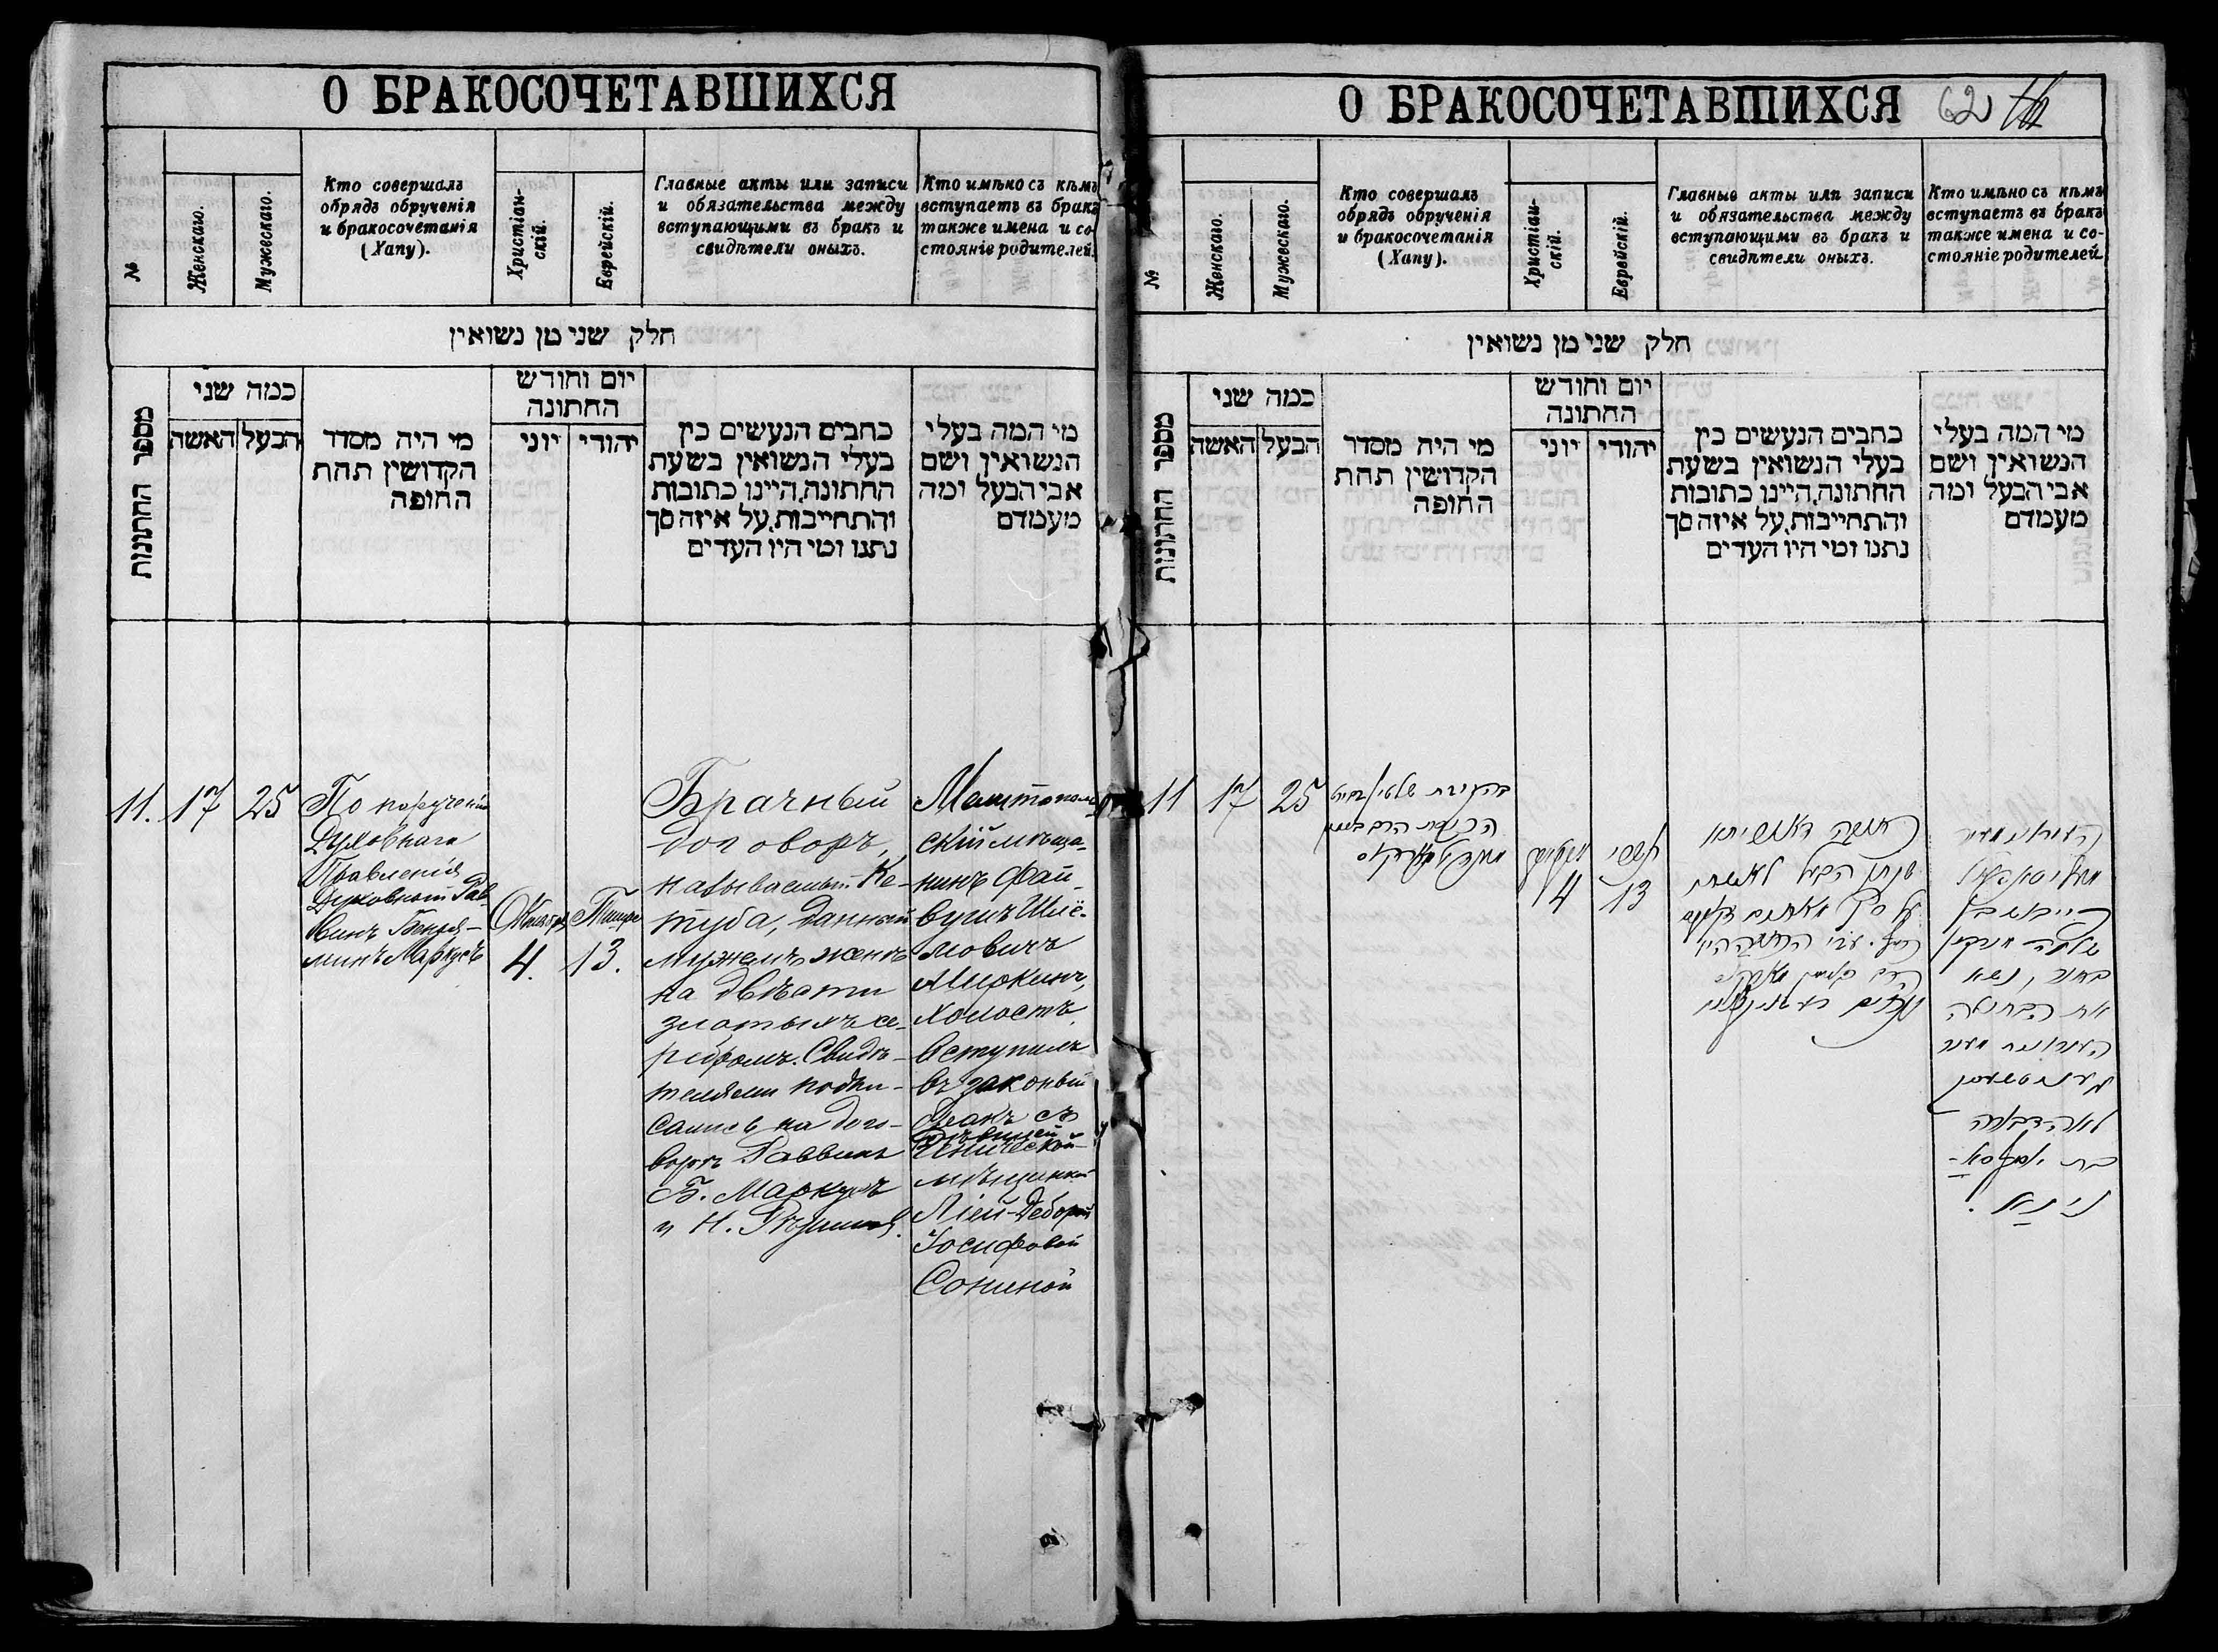 О БРАКОСОЧЕТАВШИХСЯ
№
Женскаго.
Мужескаго.
Кто совершалъ
обрядъ обрученія
и бракосочетанія
(Хапу).
Христіан-
скій.
Еврейскій.
Главные акты или записи
и обязательства между
вступающими въ бракъ и
свидѣтели оныхъ.
Кто имѣно съ кѣмъ
вступаетъ въ бракъ
также имена и со-
стояніе родителей.
חלק שני מן נשואין
מספר החתונות
כמה שני
האשה
הבעל
מי היה מסדר
הקדושין תחת
החופה
יום וחודש
החתונה
יוני
יהודי
כתבים הנעשים בין
בעלי הנשואין בשעת
החתונה, היינו כתובות
והתחייבות, על איזה סך
נתנו ומי היו העדים
מי המה בעלי
הנשואין ושם
אבי הבעל ומה
מעמדם
11.
17
25
По порученію
Духовнаго
Правленія
Духовный Рав-
винъ Беніа-
минъ Маркусъ
Октября
4.
Тишри
13.
Брачный
договоръ,
называемый Ке-
туба, данный
мужемъ женѣ
на двѣсти
злотыхъ се-
ребромъ. Свидѣ-
телями подпи-
сались на дого-
ворѣ Раввинъ
Б. Маркусъ
и Н.
Мелитополь
скій мѣща-
нинъ Фай-
вушъ Шлё-
мовичъ
Миркинъ,
холостъ,
вступилъ
въ законый
бракъ съ
дѣвицей
Генической
мѣщанкой
Ліей-Деборой
Іосифовой
Сониной
О БРАКОСОЧЕТАВШИХСЯ
62
№
Женскаго.
Мужескаго.
Кто совершалъ
обрядъ обрученія
и бракосочетанія
(Хапу).
Христіан-
скій.
Еврейскій.
Главные акты или записи
и обязательства между
вступающими въ бракъ и
свидѣтели оныхъ.
Кто имѣно съ кѣмъ
вступаетъ въ бракъ
также имена и со-
стояніе родителей
חלק שני מן נשואין
מספר החתונות
כמה שני
האשה
הבעל
מי היה מסדר
הקדושין תחת
החופה
יום וחודש
החתונה
יוני
יהודי
כתבים הנעשים בין
בעלי הנשואין בשעת
החתונה, היינו כתובות
והתחייבות, על איזה סך
נתנו ומי היו העדים
מי המה בעלי
הנשואין ושם
אבי הבעל ומה
מעמדם
11
17
25
4
תשרי
13
שנתן הבעל לאשתו
על סך מאתים זקוקים
פייבוש בן
שלמה מירקין
בחור, נשא
את הבתולה
לאה דבורה
בת יוסף